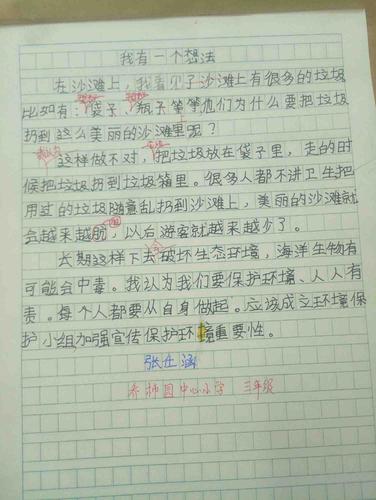 我有一个想法
在沙滩上，我看见了沙滩上有很多的垃圾
比如有：袋子、瓶子等等他们为什么要把垃圾
扔到这么美丽的沙滩里呢？
这样做不对，把垃圾放在袋子里，走的时
候把垃圾扔到垃圾箱里。很多人都不讲卫生把
用过的垃圾随意乱扔到沙滩上，美丽的沙滩就
会越来越脏，以后游客就越来越少了。
长期这样下去会破坏生态环境，海洋生物有
可能会中毒。我认为我们要保护环境、人人有
责。每个人都要从自身做起。应该成立环境保
护小组加强宣传保护环境重要性。
张仕涵
中心小学 三年级